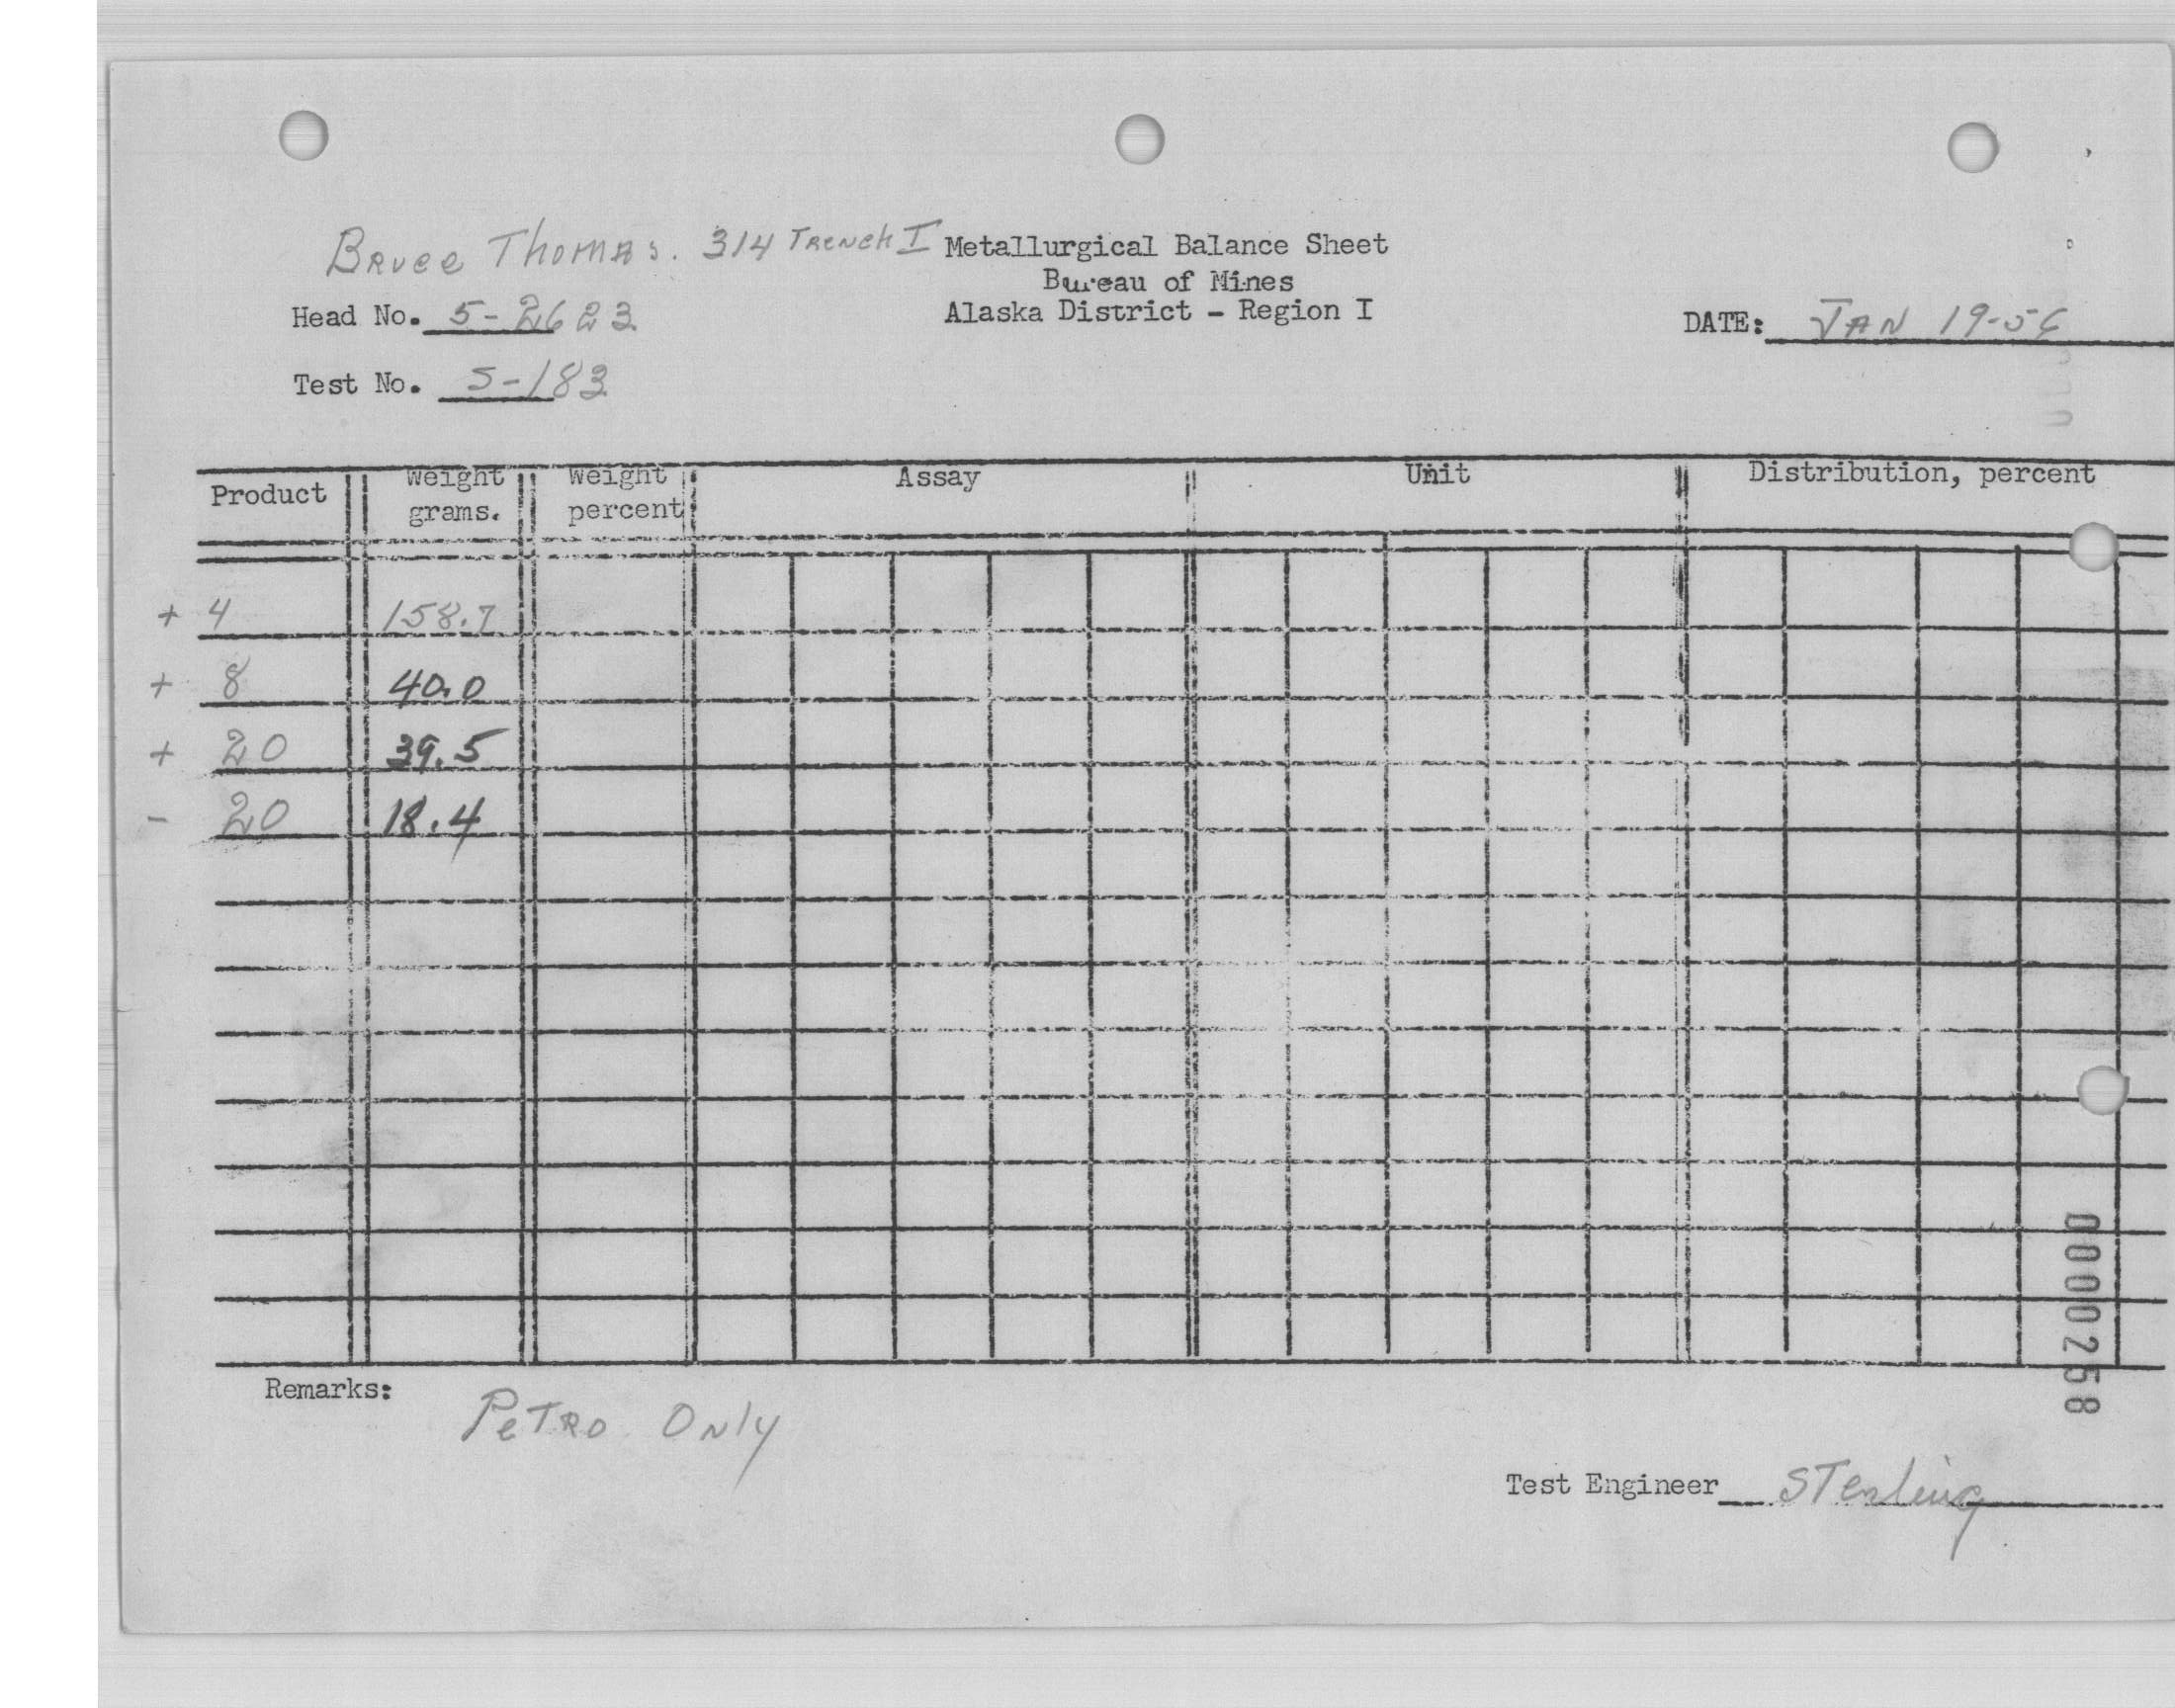 Bruce Thomas. 314 Trench I
Metallurgical Balance Sheet
Bureau of Mines
Alaska District - Region I
Head No. 5-2623
DATE: JAN 19-56
Test No. 5-183
Product Weight grams. Weight percent Assay Unit Distribution, percent
+ 4 158.7
+ 8 40.0
+ 20 39.5
- 20 18.4
0000258
Remarks: Petro Only
Test Engineer Sterling